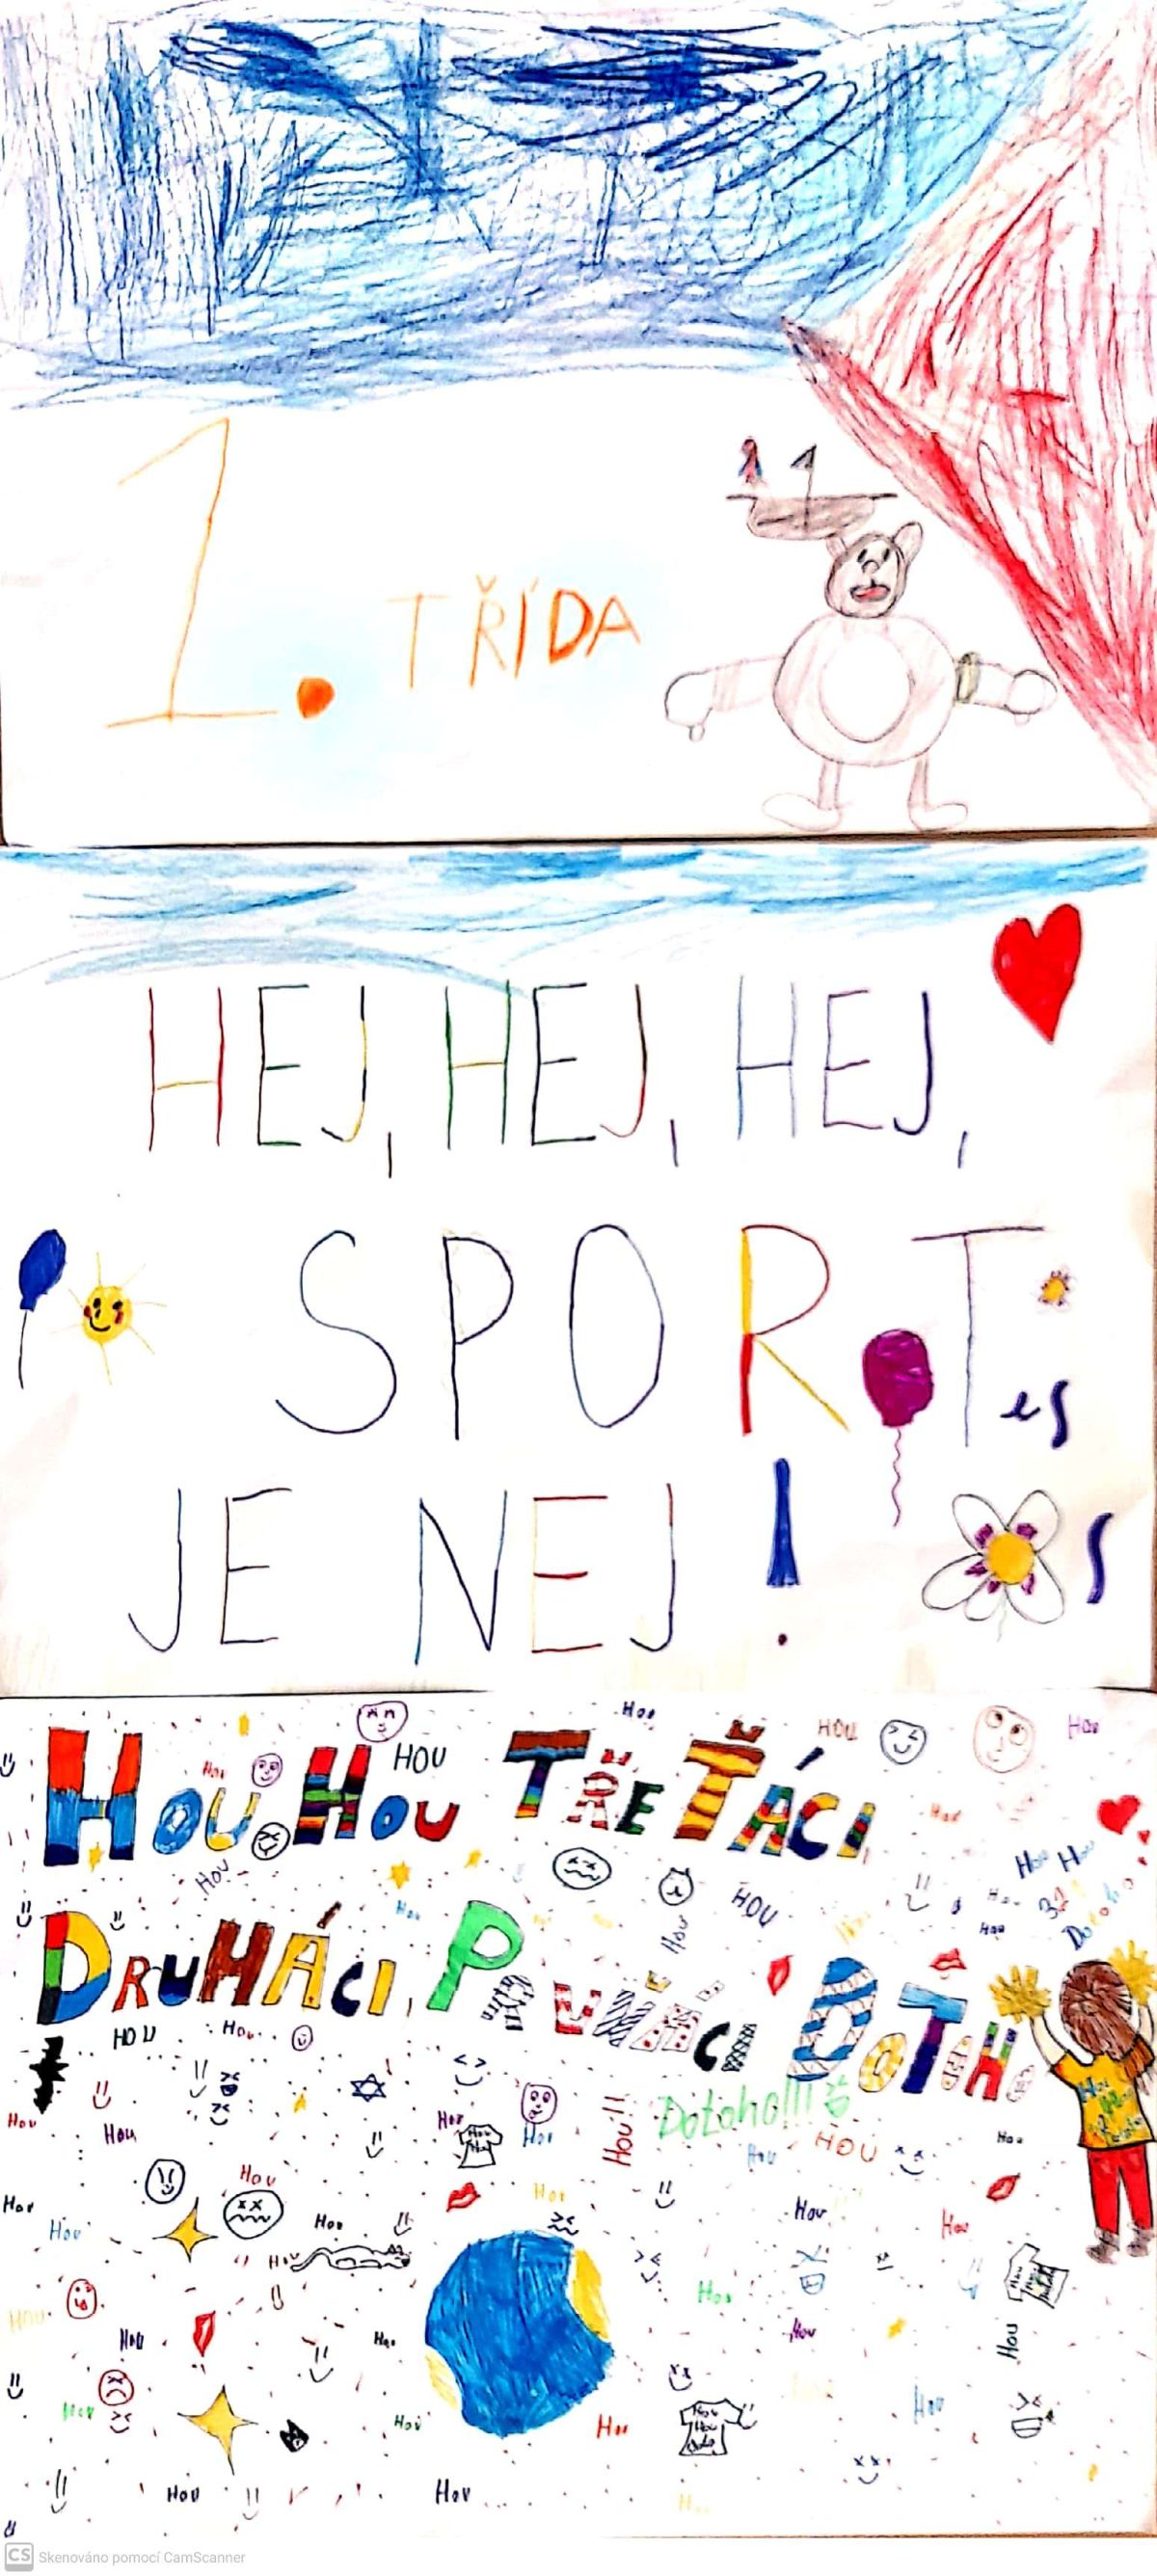 1. TŘÍDA
HEJ, HEJ, HEJ,
SPORT
es
JE NEJ!
Hou
HOU
Hou
HOU
Hou
HOU HOU TŘEŤÁCI,
Hou
Hou
Hou Hou
HOU
Hou
Hou
HOU
Hou
Hou
DRUHÁCI, PRVŇÁCI DOTOHO
HOU
Hou
Hou
Hou
Hou
Hou!!
Dotoho!!!
HOU
Hou
Hou
Hou
Hou
Hou
Hou
Hou
Hou
Hou
Hou
Hou
Hou
HOU
Hou
Hou
Hou
Hou
Hou
Hou
Hou
Hou
Hou
Hou
Hou
CS Skenováno pomocí CamScanner